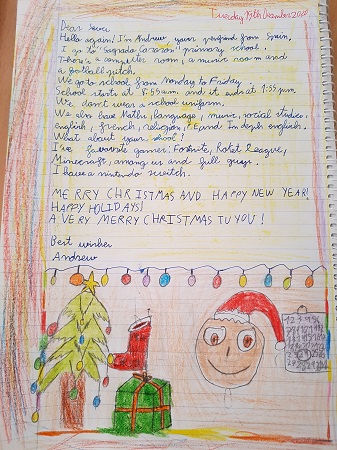 Tuesday 15th December 2020
Dear
Hello again! I'm Andrew, your penfriend from Spain.
I go to "Sagrado Corazon" primary school.
There's a computer room, a music room and
a football pitch.
We go to school from Monday to Friday.
School starts at 8:55am. and it ends at 1:55 pm.
We don't wear a school uniform.
We also have Maths, language, music, social studies,
english, french, religion, and In depth english.
What about your school?
I've favourite games: Fortnite, Rocket League,
Minecraft, among us and full guys.
I have a nintendo switch.
MERRY CHRISTMAS AND HAPPY NEW YEAR!
HAPPY HOLIDAYS!
A VERY MERRY CHRISTMAS TO YOU!
Best wishes
Andrew